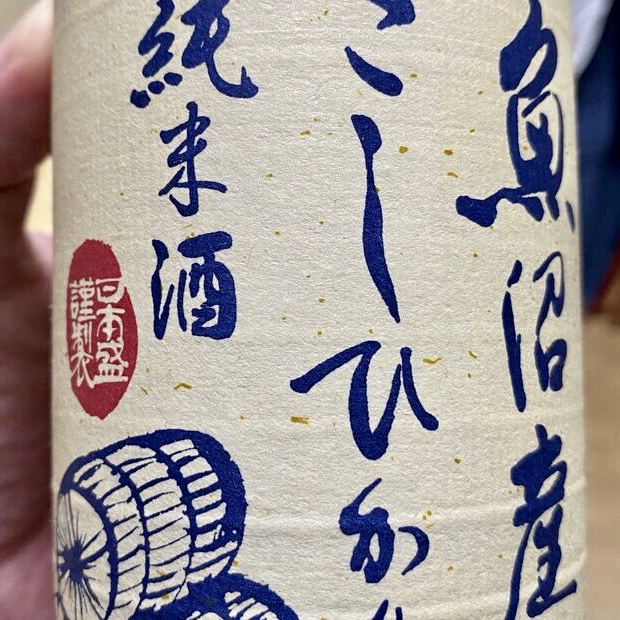 魚沼産
こしひか
純米酒
日本盛
謹製